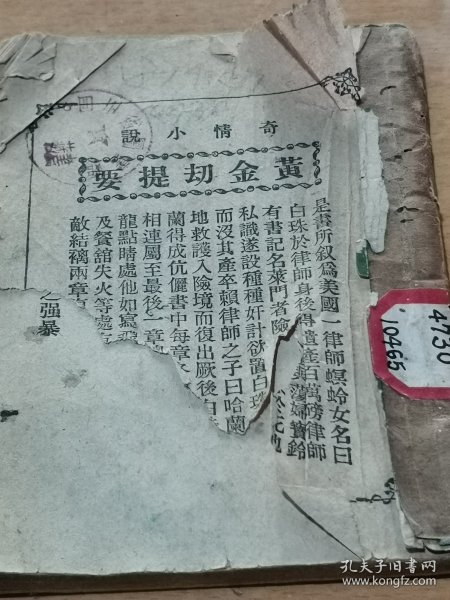 奇情小說
黃金刧提要
是書所叙爲美國一律師螟蛉女名曰
白珠於律師身後得遺產百萬磅律師
有書記名萊門者險
蕩婦寶鈴
私識遂設種種奸計欲置白珠
於死地
而沒其產卒賴律師之子曰哈蘭
地救護入險境而復出厥後白
蘭得成伉儷書中每章
相連屬至最後一章
龍點睛處他如寫
及餐舘失火等處
敵結褵兩章
强暴
4730
10465
孔夫子旧书网
www.kongfz.com